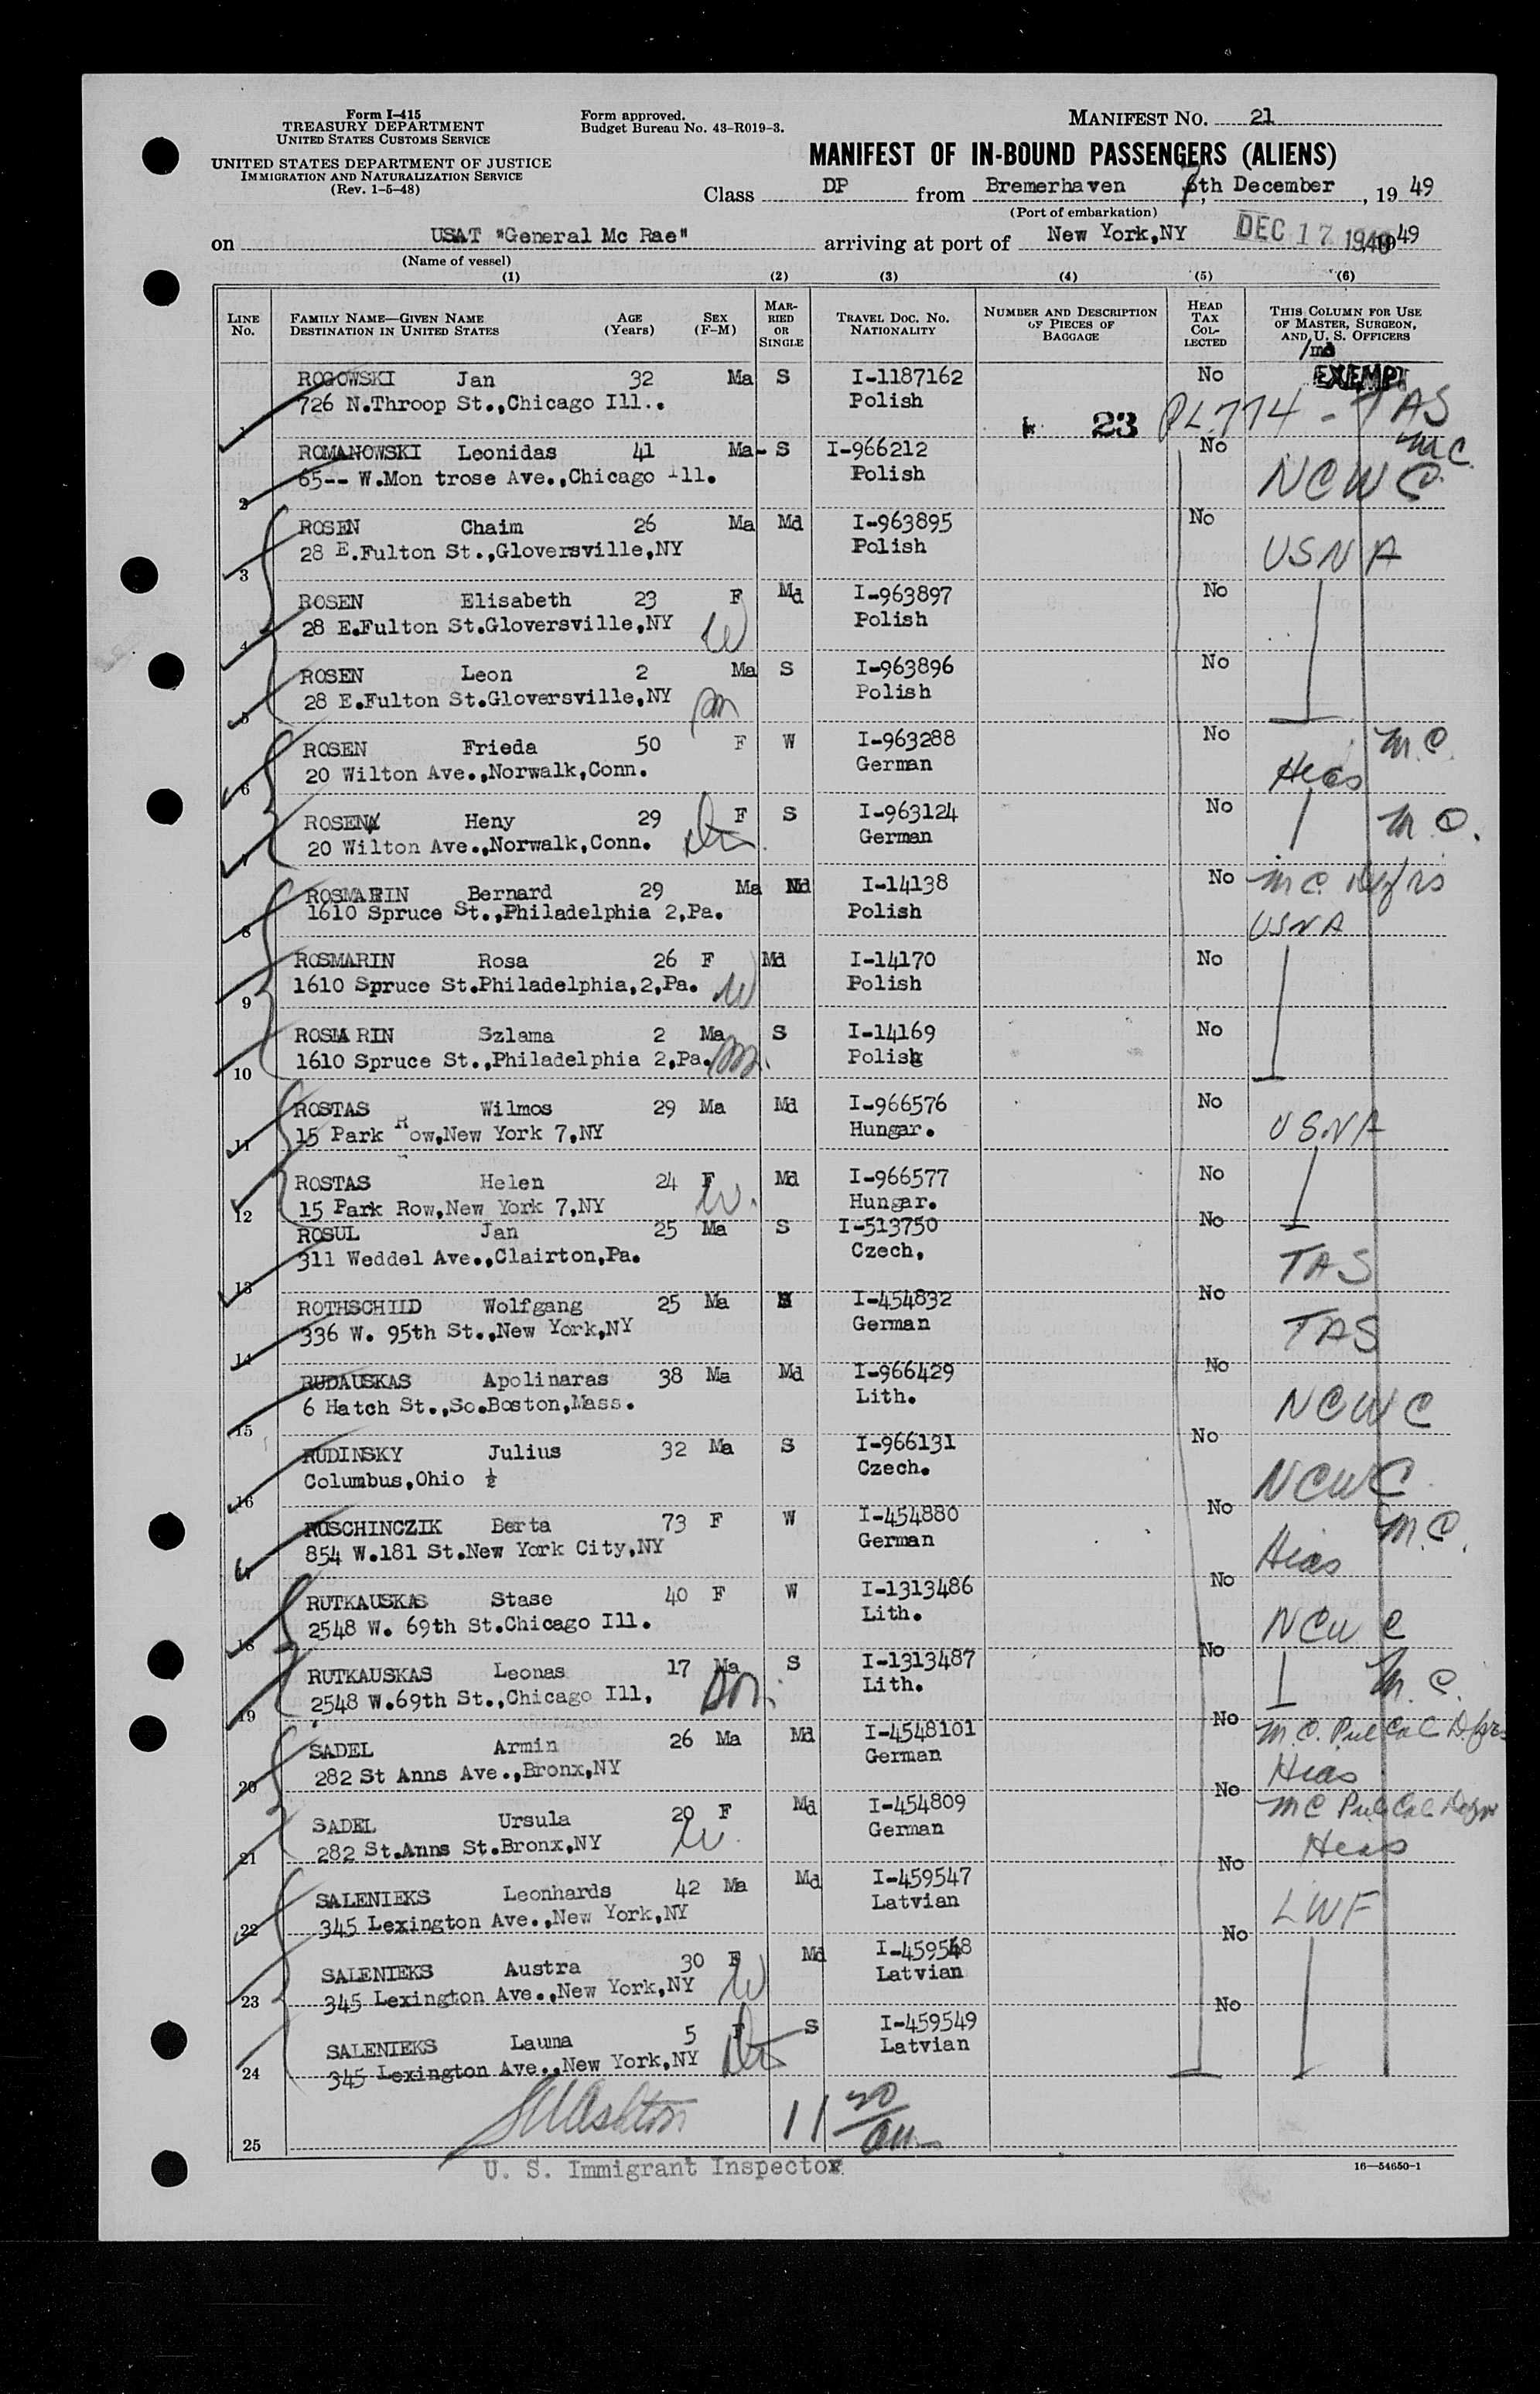 Form I-415
TREASURY DEPARTMENT
UNITED STATES CUSTOMS SERVICE
UNITED STATES DEPARTMENT OF JUSTICE
IMMIGRATION AND NATURALIZATION SERVICE
(Rev. 1-5-48)
Form approved.
Budget Bureau No. 43-R019-3.
MANIFEST NO. 21
MANIFEST OF IN-BOUND PASSENGERS (ALIENS)
Class DP from Bremerhaven 7th December, 19 49
(Port of embarkation)
on USAT "General Mc Rae" arriving at port of New York,NY DEC 17 1949 49
(Name of vessel)
(1) (2) (3) (4) (5) (6)
LINE NO. FAMILY NAME—GIVEN NAME DESTINATION IN UNITED STATES AGE (Years) SEX (F-M) MARRIED OR SINGLE TRAVEL DOC. NO. NATIONALITY NUMBER AND DESCRIPTION OF PIECES OF BAGGAGE HEAD TAX COLLECTED THIS COLUMN FOR USE OF MASTER, SURGEON, AND U. S. OFFICERS
ROGOWSKI Jan 32 Ma S I-1187162 No EXEMPT
1 726 N.Throop St.,Chicago Ill.. Polish 23 PL774 - TAS
ROMANOWSKI Leonidas 41 Ma- S I-966212 No MC
2 65-- W.Mon trose Ave.,Chicago Ill. Polish NCWC
ROSEN Chaim 26 Ma Md I-963895 No
3 28 E.Fulton St.,Gloversville,NY Polish USNA
ROSEN Elisabeth 23 F Md I-963897 No
4 28 E.Fulton St.Gloversville,NY W Polish
ROSEN Leon 2 Ma S I-963896 No
5 28 E.Fulton St.Gloversville,NY Polish
ROSEN Frieda 50 F W I-963288 No M.C.
6 20 Wilton Ave.,Norwalk,Conn. German Hias
ROSEN Heny 29 F S I-963124 No
7 20 Wilton Ave.,Norwalk,Conn. German M.C.
ROSMARIN Bernard 29 Ma Md I-14138 No MC
8 1610 Spruce St.,Philadelphia 2,Pa. Polish USNA
ROSMARIN Rosa 26 F Md I-14170 No
9 1610 Spruce St.Philadelphia,2,Pa. W Polish
ROSMA RIN Szlama 2 Ma S I-14169 No
10 1610 Spruce St.,Philadelphia 2,Pa. Polish
ROSTAS Wilmos 29 Ma Md I-966576 No
11 15 Park Row,New York 7,NY Hungar. USNA
ROSTAS Helen 24 F Md I-966577 No
12 15 Park Row,New York 7,NY W. Hungar.
ROSUL Jan 25 Ma S I-513750 No
13 311 Weddel Ave.,Clairton,Pa. Czech, TAS
ROTHSCHIID Wolfgang 25 Ma S I-454832 No
14 336 W. 95th St.,New York,NY German TAS
RUDAUSKAS Apolinaras 38 Ma Md I-966429 No
15 6 Hatch St.,So.Boston,Mass. Lith. NCWC
RUDINSKY Julius 32 Ma S I-966131 No
16 Columbus,Ohio ½ Czech. NCWC
RUSCHINCZIK Berta 73 F W I-454880 No M.C.
854 W.181 St.New York City,NY German Hias
RUTKAUSKAS Stase 40 F W I-1313486 No
18 2548 W. 69th St.Chicago Ill. Lith. NCWC
RUTKAUSKAS Leonas 17 Ma S I-1313487 No
19 2548 W.69th St.,Chicago Ill, Son. Lith. M.C.
SADEL Armin 26 Ma Md I-4548101 No M.C. Pul Cal
20 282 St Anns Ave.,Bronx,NY German Hias
SADEL Ursula 20 F Md I-454809 No MC Pul Cal
21 282 St.Anns St.Bronx,NY W. German Hias
SALENIEKS Leonhards 42 Ma Md I-459547 No
22 345 Lexington Ave.,New York,NY Latvian LWF
SALENIEKS Austra 30 F Md I-459548 No
23 345 Lexington Ave.,New York,NY W Latvian
SALENIEKS Lauma 5 F S I-459549 No
24 345 Lexington Ave.,New York,NY Latvian
25 11 30
U. S. Immigrant Inspector
16—54650-1